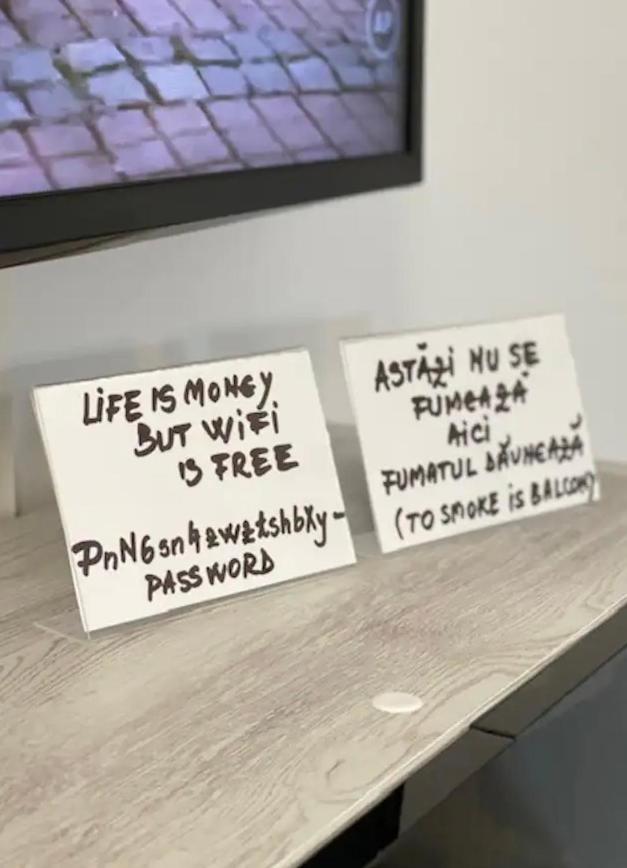 LiFE IS MONEY
BUT WiFi
IS FREE
PnN6sn4zwztshbXy -
PASSWORD
ASTĂZi NU SE
FUMEAZĂ
AiCi
FUMATUL DĂUNEAZĂ
(TO SMOKE iS BALCON)